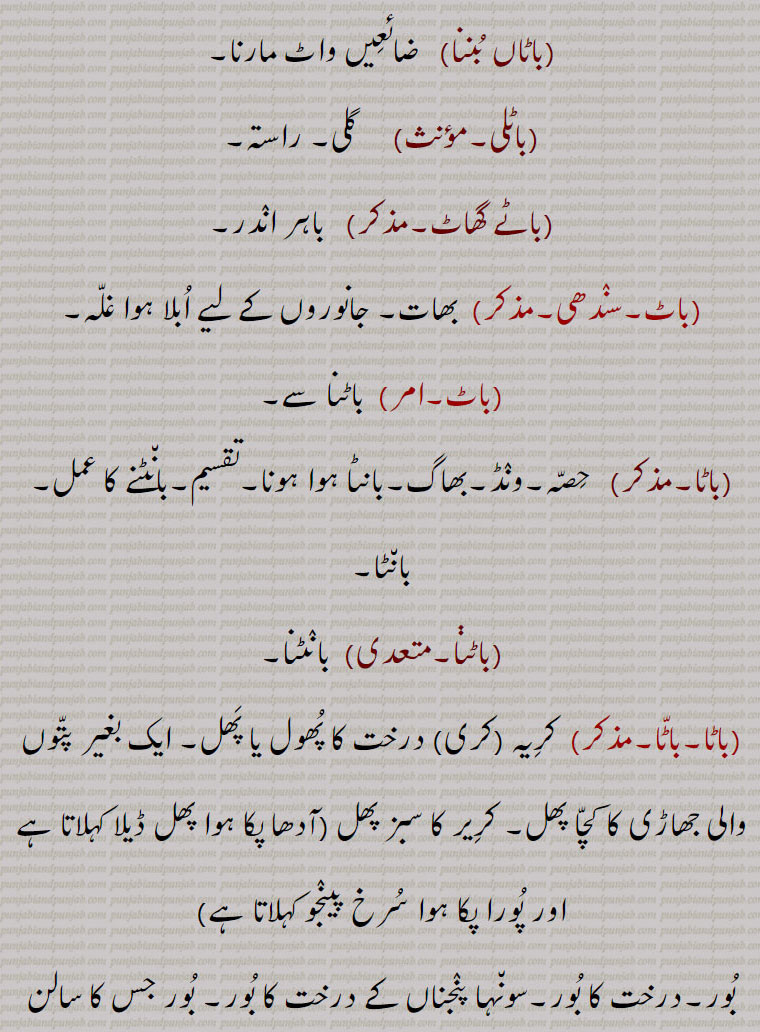 (باٹاں بُننا) ضائعِیں واٹ مارنا۔
(باٹلی۔مؤنث) گلی۔ راستہ۔
(باٹے گھاٹ۔مذکر) باہر انْدر۔
(باٹ۔سنْدھی۔مذکر) بھات۔ جانوروں کے لیے اُبلا ہوا غلّہ۔
(باٹ۔امر) باٹنا سے۔
(باٹا۔مذکر) حِصّہ۔ونْڈ۔بھاگ۔بانٹا ہوا ہونا۔تقسیم۔بانْٹنے کا عمل۔
بانْٹا۔
(باٹنا۔متعدی) بانْٹنا۔
(باٹا۔باٹّا۔مذکر) کرِیہ (کری) درخت کا پُھول یا پَھل۔ ایک بغیر پتّوں
والی جھاڑی کا کچّا پھل۔ کرِیر کا سبز پھل (آدھا پکا ہوا پھل ڈیلا کہلاتا ہے
اور پُورا پکا ہوا سُرخ پینْجو کہلاتا ہے)
بُور۔درخت کا بُور۔سونْہا پنْجناں کے درخت کا بُور۔ بُور جس کا سالن